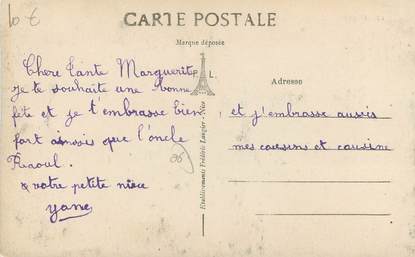 10 €
CARTE POSTALE
Marque déposée
E. L.
Adresse
Chere Tante Marguerite
Je te souhaite une bonne
fête et je t'embrasse bien
fort ainsois que l'oncle
Raoul.
votre petite niece
yane
et j'embrasse aussis
mes cousins et cousine
Etablissements Frédéric Laugier - Nice